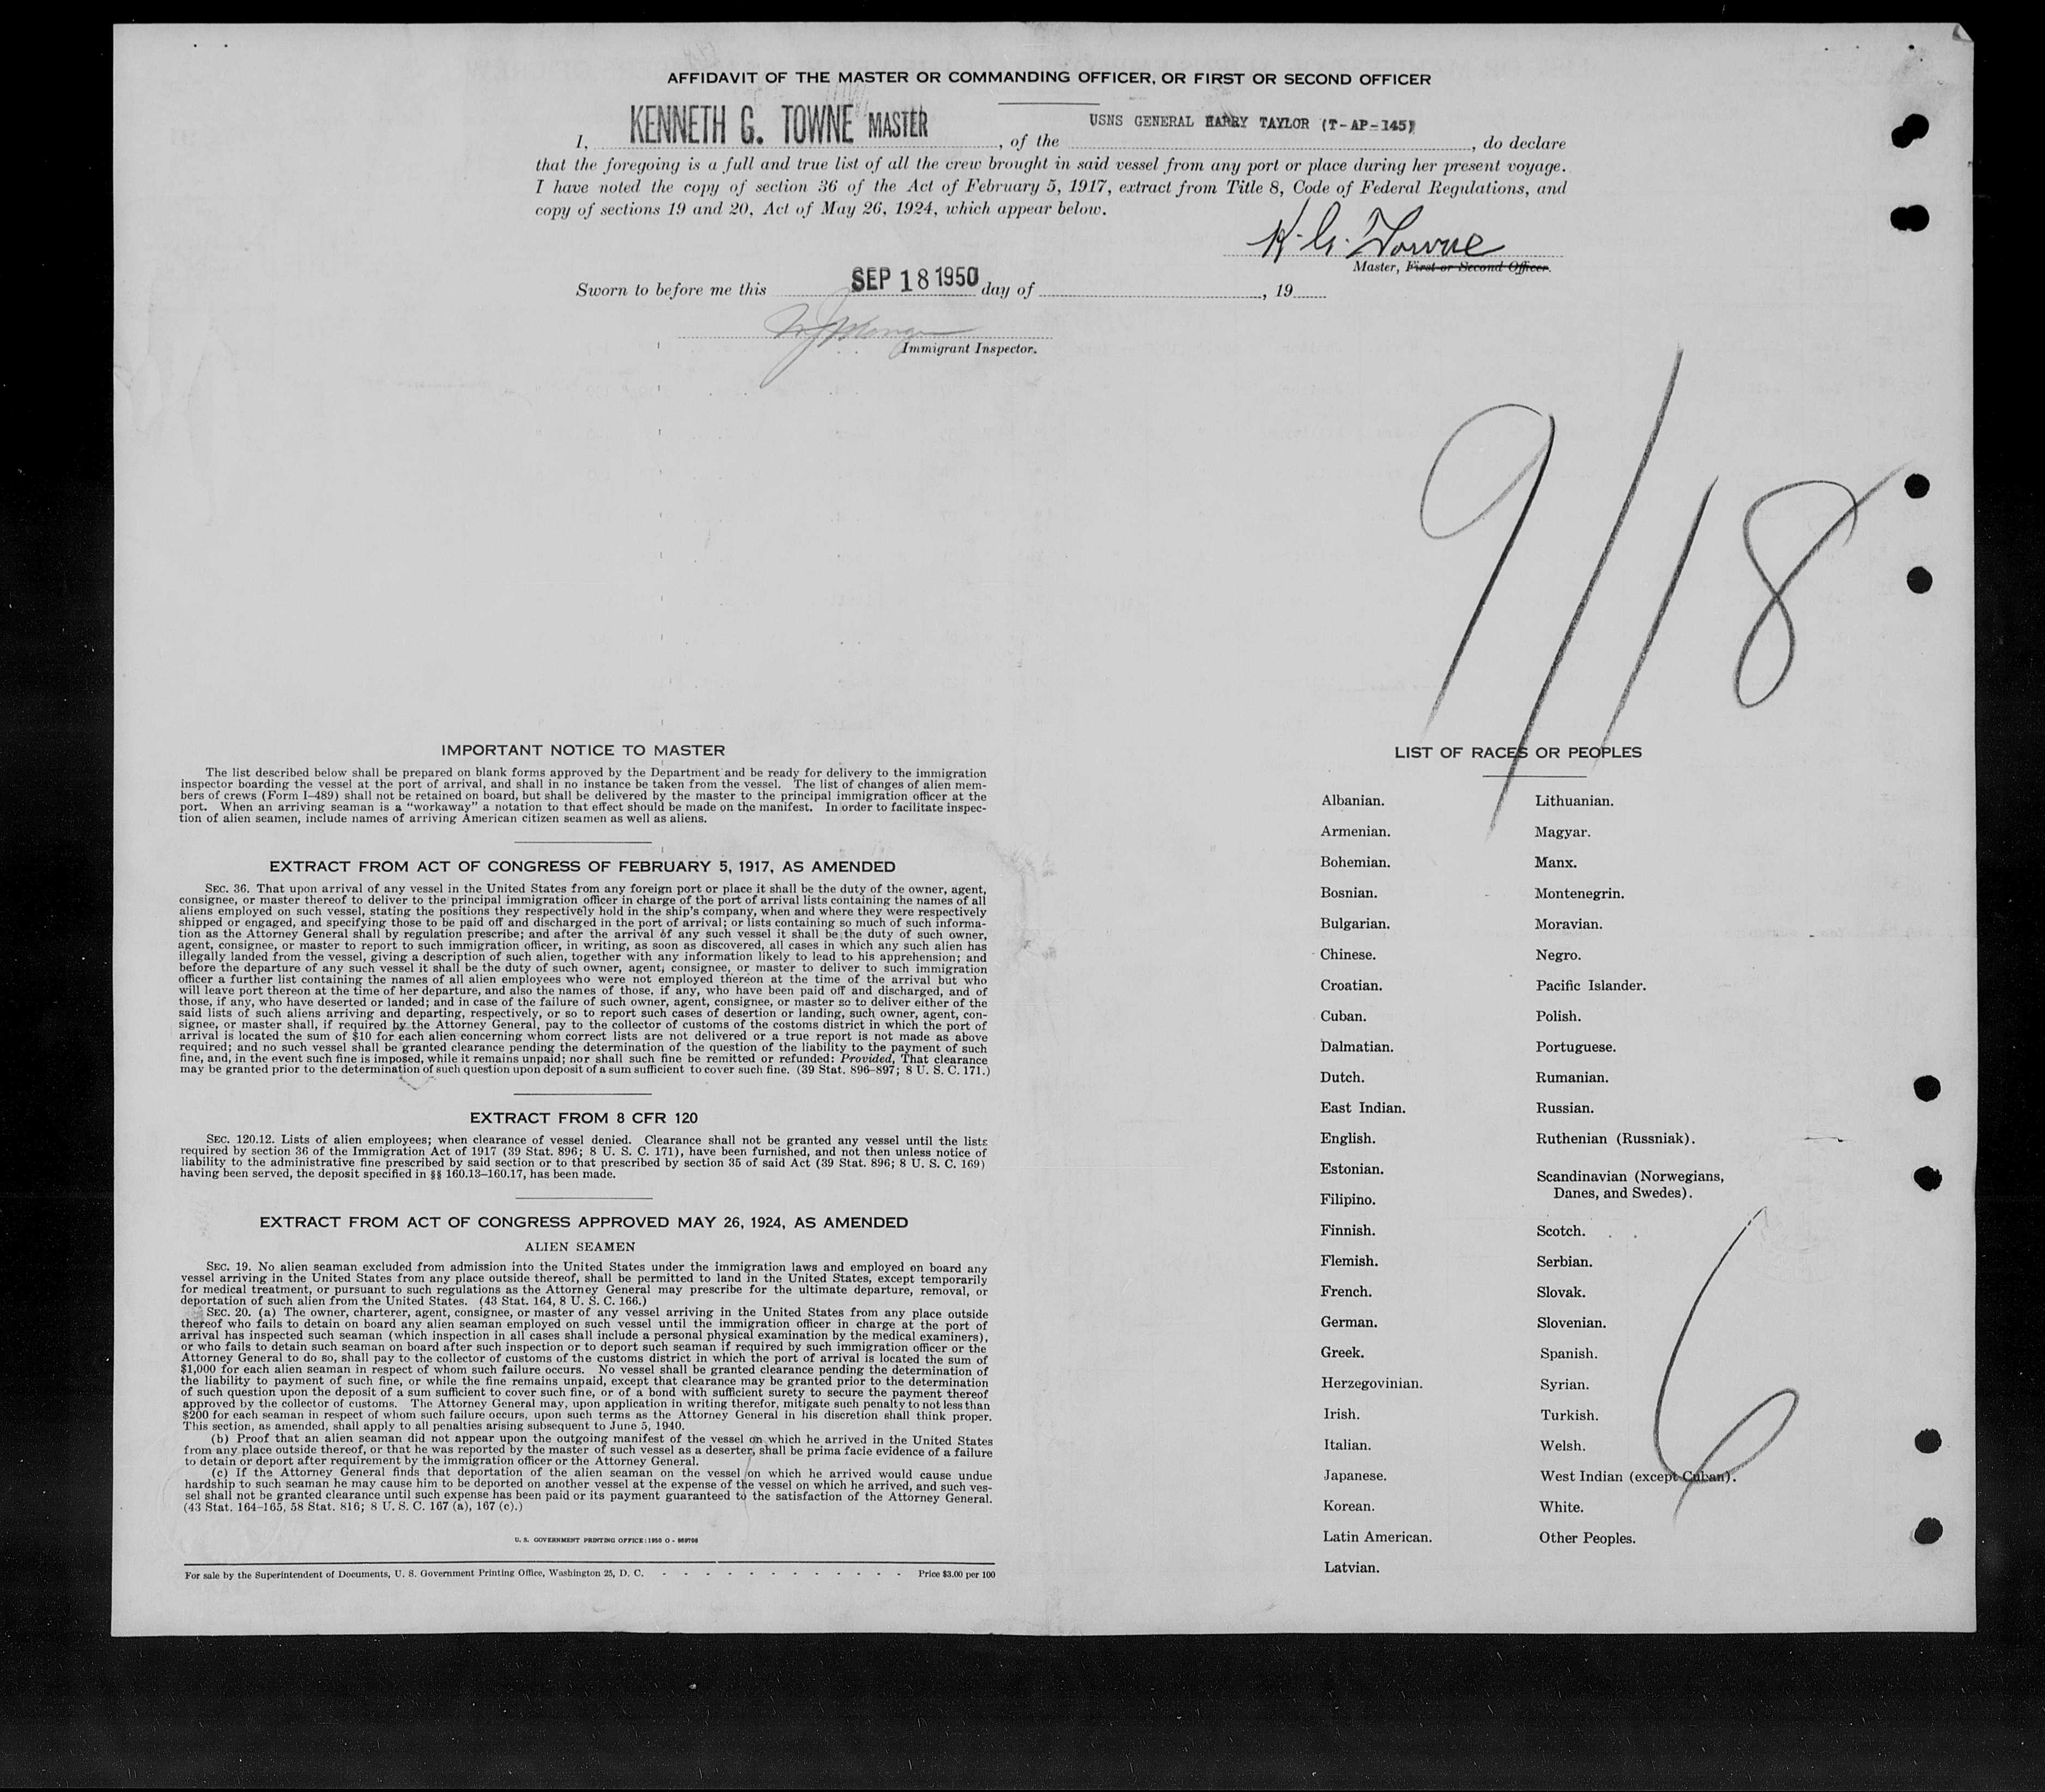 AFFIDAVIT OF THE MASTER OR COMMANDING OFFICER, OR FIRST OR SECOND OFFICER
I, KENNETH G. TOWNE MASTER, of the USNS GENERAL HARRY TAYLOR (T-AP-145), do declare
that the foregoing is a full and true list of all the crew brought in said vessel from any port or place during her present voyage.
I have noted the copy of section 36 of the Act of February 5, 1917, extract from Title 8, Code of Federal Regulations, and
copy of sections 19 and 20, Act of May 26, 1924, which appear below.
K. G. Towne
Master, First or Second Officer.
Sworn to before me this SEP 18 1950 day of , 19
Immigrant Inspector.
9/18
IMPORTANT NOTICE TO MASTER
The list described below shall be prepared on blank forms approved by the Department and be ready for delivery to the immigration
inspector boarding the vessel at the port of arrival, and shall in no instance be taken from the vessel. The list of changes of alien mem-
bers of crews (Form I-489) shall not be retained on board, but shall be delivered by the master to the principal immigration officer at the
port. When an arriving seaman is a "workaway" a notation to that effect should be made on the manifest. In order to facilitate inspec-
tion of alien seamen, include names of arriving American citizen seamen as well as aliens.
EXTRACT FROM ACT OF CONGRESS OF FEBRUARY 5, 1917, AS AMENDED
SEC. 36. That upon arrival of any vessel in the United States from any foreign port or place it shall be the duty of the owner, agent,
consignee, or master thereof to deliver to the principal immigration officer in charge of the port of arrival lists containing the names of all
aliens employed on such vessel, stating the positions they respectively hold in the ship's company, when and where they were respectively
shipped or engaged, and specifying those to be paid off and discharged in the port of arrival; or lists containing so much of such informa-
tion as the Attorney General shall by regulation prescribe; and after the arrival of any such vessel it shall be the duty of such owner,
agent, consignee, or master to report to such immigration officer, in writing, as soon as discovered, all cases in which any such alien has
illegally landed from the vessel, giving a description of such alien, together with any information likely to lead to his apprehension; and
before the departure of any such vessel it shall be the duty of such owner, agent, consignee, or master to deliver to such immigration
officer a further list containing the names of all alien employees who were not employed thereon at the time of the arrival but who
will leave port thereon at the time of her departure, and also the names of those, if any, who have been paid off and discharged, and of
those, if any, who have deserted or landed; and in case of the failure of such owner, agent, consignee, or master so to deliver either of the
said lists of such aliens arriving and departing, respectively, or so to report such cases of desertion or landing, such owner, agent, con-
signee, or master shall, if required by the Attorney General, pay to the collector of customs of the costoms district in which the port of
arrival is located the sum of $10 for each alien concerning whom correct lists are not delivered or a true report is not made as above
required; and no such vessel shall be granted clearance pending the determination of the question of the liability to the payment of such
fine, and, in the event such fine is imposed, while it remains unpaid; nor shall such fine be remitted or refunded: Provided, That clearance
may be granted prior to the determination of such question upon deposit of a sum sufficient to cover such fine. (39 Stat. 896-897; 8 U. S. C. 171.)
EXTRACT FROM 8 CFR 120
SEC. 120.12. Lists of alien employees; when clearance of vessel denied. Clearance shall not be granted any vessel until the lists
required by section 36 of the Immigration Act of 1917 (39 Stat. 896; 8 U. S. C. 171), have been furnished, and not then unless notice of
liability to the administrative fine prescribed by said section or to that prescribed by section 35 of said Act (39 Stat. 896; 8 U. S. C. 169)
having been served, the deposit specified in §§ 160.13-160.17, has been made.
EXTRACT FROM ACT OF CONGRESS APPROVED MAY 26, 1924, AS AMENDED
ALIEN SEAMEN
SEC. 19. No alien seaman excluded from admission into the United States under the immigration laws and employed on board any
vessel arriving in the United States from any place outside thereof, shall be permitted to land in the United States, except temporarily
for medical treatment, or pursuant to such regulations as the Attorney General may prescribe for the ultimate departure, removal, or
deportation of such alien from the United States. (43 Stat. 164, 8 U. S. C. 166.)
SEC. 20. (a) The owner, charterer, agent, consignee, or master of any vessel arriving in the United States from any place outside
thereof who fails to detain on board any alien seaman employed on such vessel until the immigration officer in charge at the port of
arrival has inspected such seaman (which inspection in all cases shall include a personal physical examination by the medical examiners),
or who fails to detain such seaman on board after such inspection or to deport such seaman if required by such immigration officer or the
Attorney General to do so, shall pay to the collector of customs of the customs district in which the port of arrival is located the sum of
$1,000 for each alien seaman in respect of whom such failure occurs. No vessel shall be granted clearance pending the determination of
the liability to payment of such fine, or while the fine remains unpaid, except that clearance may be granted prior to the determination
of such question upon the deposit of a sum sufficient to cover such fine, or of a bond with sufficient surety to secure the payment thereof
approved by the collector of customs. The Attorney General may, upon application in writing therefor, mitigate such penalty to not less than
$200 for each seaman in respect of whom such failure occurs, upon such terms as the Attorney General in his discretion shall think proper.
This section, as amended, shall apply to all penalties arising subsequent to June 5, 1940.
(b) Proof that an alien seaman did not appear upon the outgoing manifest of the vessel on which he arrived in the United States
from any place outside thereof, or that he was reported by the master of such vessel as a deserter, shall be prima facie evidence of a failure
to detain or deport after requirement by the immigration officer or the Attorney General.
(c) If the Attorney General finds that deportation of the alien seaman on the vessel on which he arrived would cause undue
hardship to such seaman he may cause him to be deported on another vessel at the expense of the vessel on which he arrived, and such ves-
sel shall not be granted clearance until such expense has been paid or its payment guaranteed to the satisfaction of the Attorney General.
(43 Stat. 164-165, 58 Stat. 816; 8 U. S. C. 167 (a), 167 (c).)
U. S. GOVERNMENT PRINTING OFFICE: 1950 O -
For sale by the Superintendent of Documents, U. S. Government Printing Office, Washington 25, D. C. - - - - - - - - - - - - Price $3.00 per 100
LIST OF RACES OR PEOPLES
Albanian.
Armenian.
Bohemian.
Bosnian.
Bulgarian.
Chinese.
Croatian.
Cuban.
Dalmatian.
Dutch.
East Indian.
English.
Estonian.
Filipino.
Finnish.
Flemish.
French.
German.
Greek.
Herzegovinian.
Irish.
Italian.
Japanese.
Korean.
Latin American.
Latvian.
Lithuanian.
Magyar.
Manx.
Montenegrin.
Moravian.
Negro.
Pacific Islander.
Polish.
Portuguese.
Rumanian.
Russian.
Ruthenian (Russniak).
Scandinavian (Norwegians,
Danes, and Swedes).
Scotch.
Serbian.
Slovak.
Slovenian.
Spanish.
Syrian.
Turkish.
Welsh.
West Indian (except Cuban).
White.
Other Peoples.
6